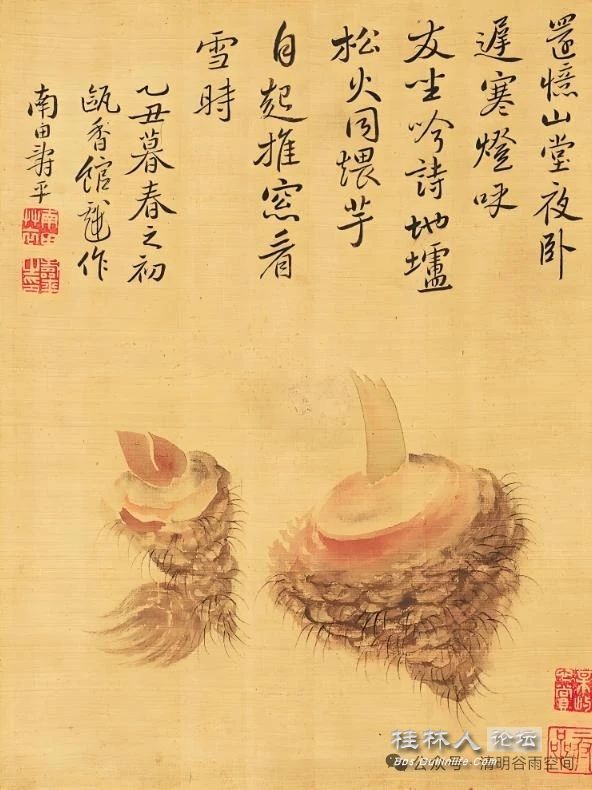 還憶山堂夜卧
遲寒燈呼
友坐吟詩地壚
松火同煨芋
自起推窓看
雪時
乙丑暮春之初
甌香館戲作
南田壽平
桂林人论坛
Bbs.Guilinlife.com
公众号·清明谷雨空间